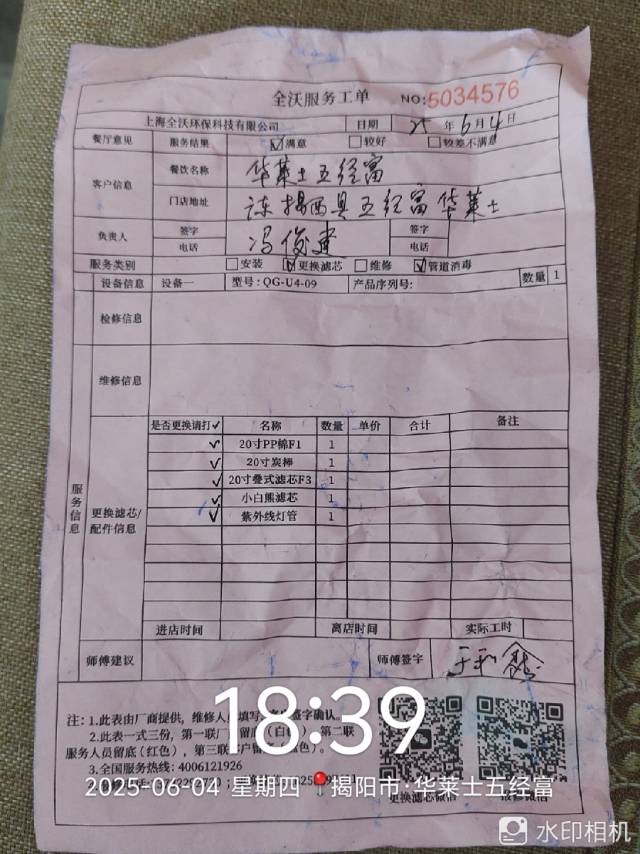 全沃服务工单 NO:5034576
上海全沃环保科技有限公司 日期 25 年 6 月 4 日
餐厅意见 服务结果 ☑满意 □较好 □较差不满意
客户信息 餐饮名称 华莱士五经富
门店地址 揭西县五经富华莱士
负责人 签字 冯俊建 签字
电话 电话
服务类别 □安装 ☑更换滤芯 □维修 ☑管道消毒
设备信息 设备一 型号:QG-U4-09 产品序列号: 数量 1
检修信息
维修信息
服务信息
更换滤芯/配件信息
是否更换请打✓ 名称 数量 单价 合计 备注
✓ 20寸PP棉F1 1
✓ 20寸炭棒 1
✓ 20寸叠式滤芯F3 1
✓ 小白熊滤芯 1
✓ 紫外线灯管 1
进店时间 离店时间 实际工时
师傅建议 师傅签字
注: 1.此表由厂商提供, 维修人员填写, 签字确认
2.此表一式三份, 第一联厂 留底(白 ), 第二联
服务人员留底(红色), 第三联 户留 色)。
3.全国服务热线: 4006121926
18:39
2025-06-04 星期四 揭阳市·华莱士五经富
更换滤芯微信 报修微信
水印相机